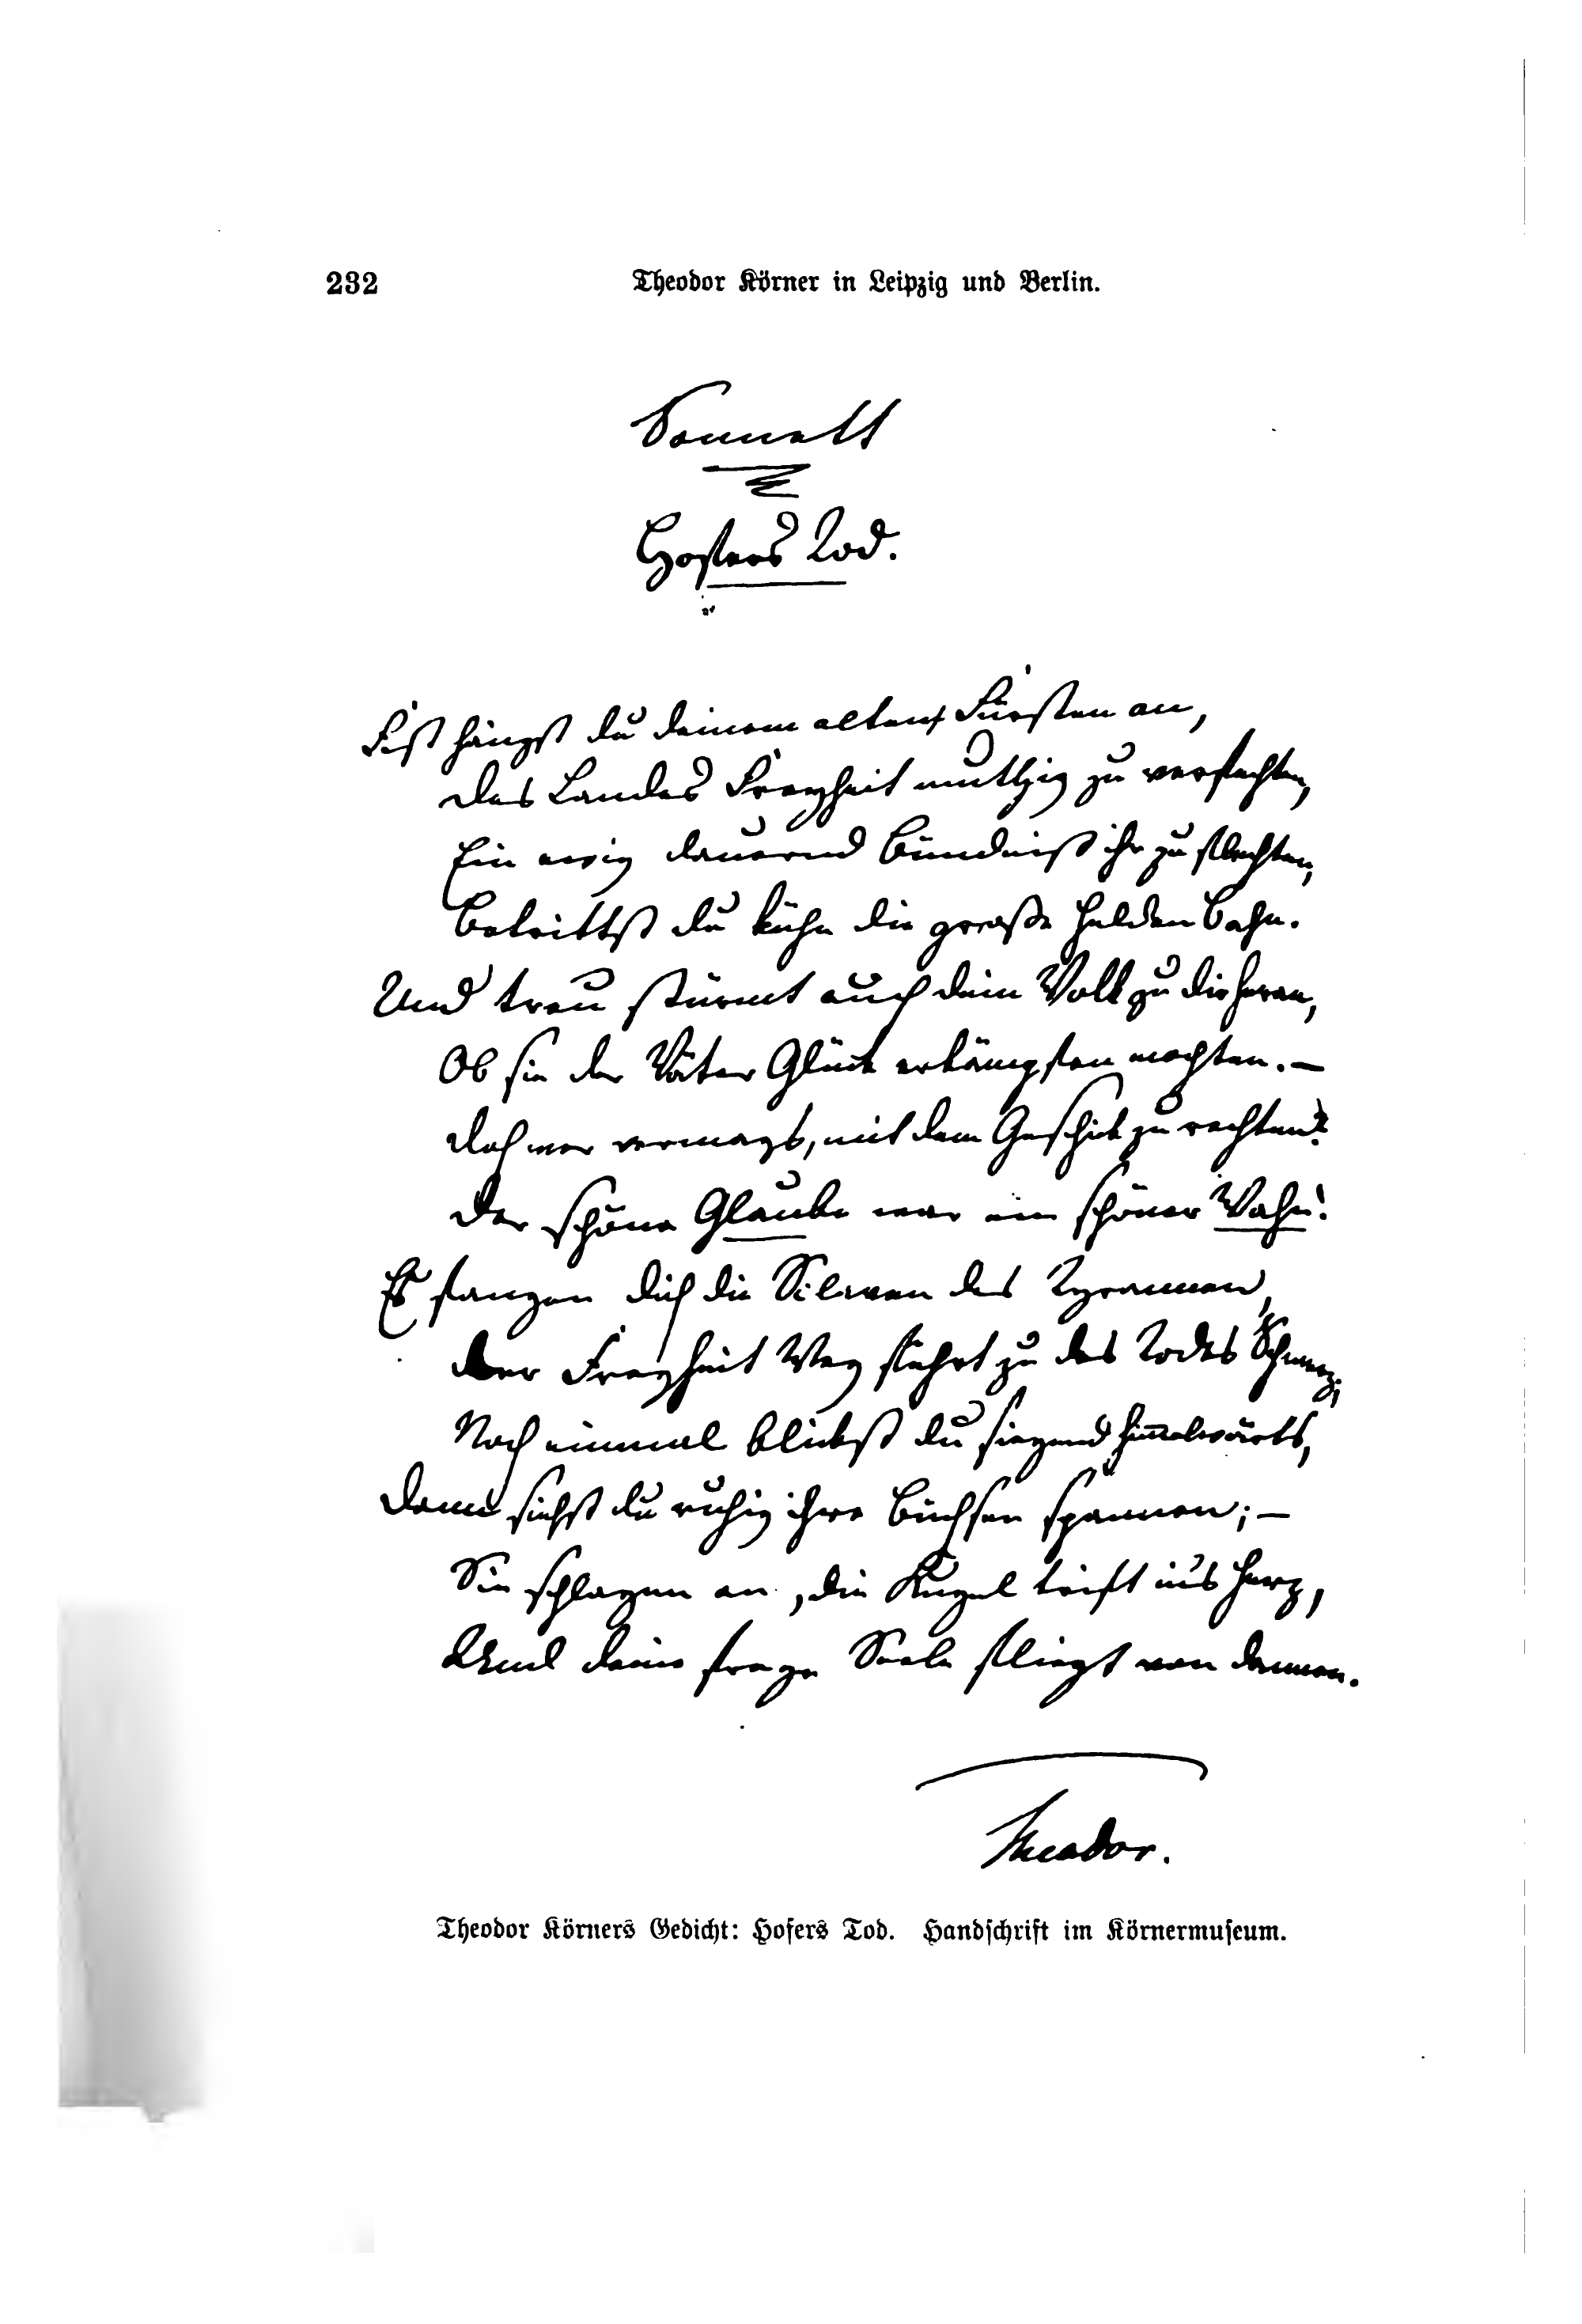 232
Theodor Körner in Leipzig und Berlin.
Sonnett
Hofers Tod.
Fest hängst du deinem alten Fürsten an,
Des Landes Freyheit muthig zu verfechten,
Ein ewig dauernd Bündniß ihr zu flechten,
Betrittst du kühn die große Heldenbahn.
Und treu stürmt auch dein Volk zu dir heran,
Ob sie der Väter Glück erkämpfen mochten. —
Doch wer vermags, mit dem Geschick zu rechten?
Der schöne Glaube war ein schöner Wahn!
Es fangen dich die Sclaven des Tyrannen,
Der Freyheit Weg führt zu des Todes Schmerz;
Noch einmal blickst du siegend himmelwärts,
Dann siehst du ruhig ihre Büchsen spannen; —
Sie schlagen an, die Kugel trift ins Herz,
Und deine freye Seele fliegt von dannen.
Theodor.
Theodor Körners Gedicht: Hofers Tod. Handschrift im Körnermuseum.